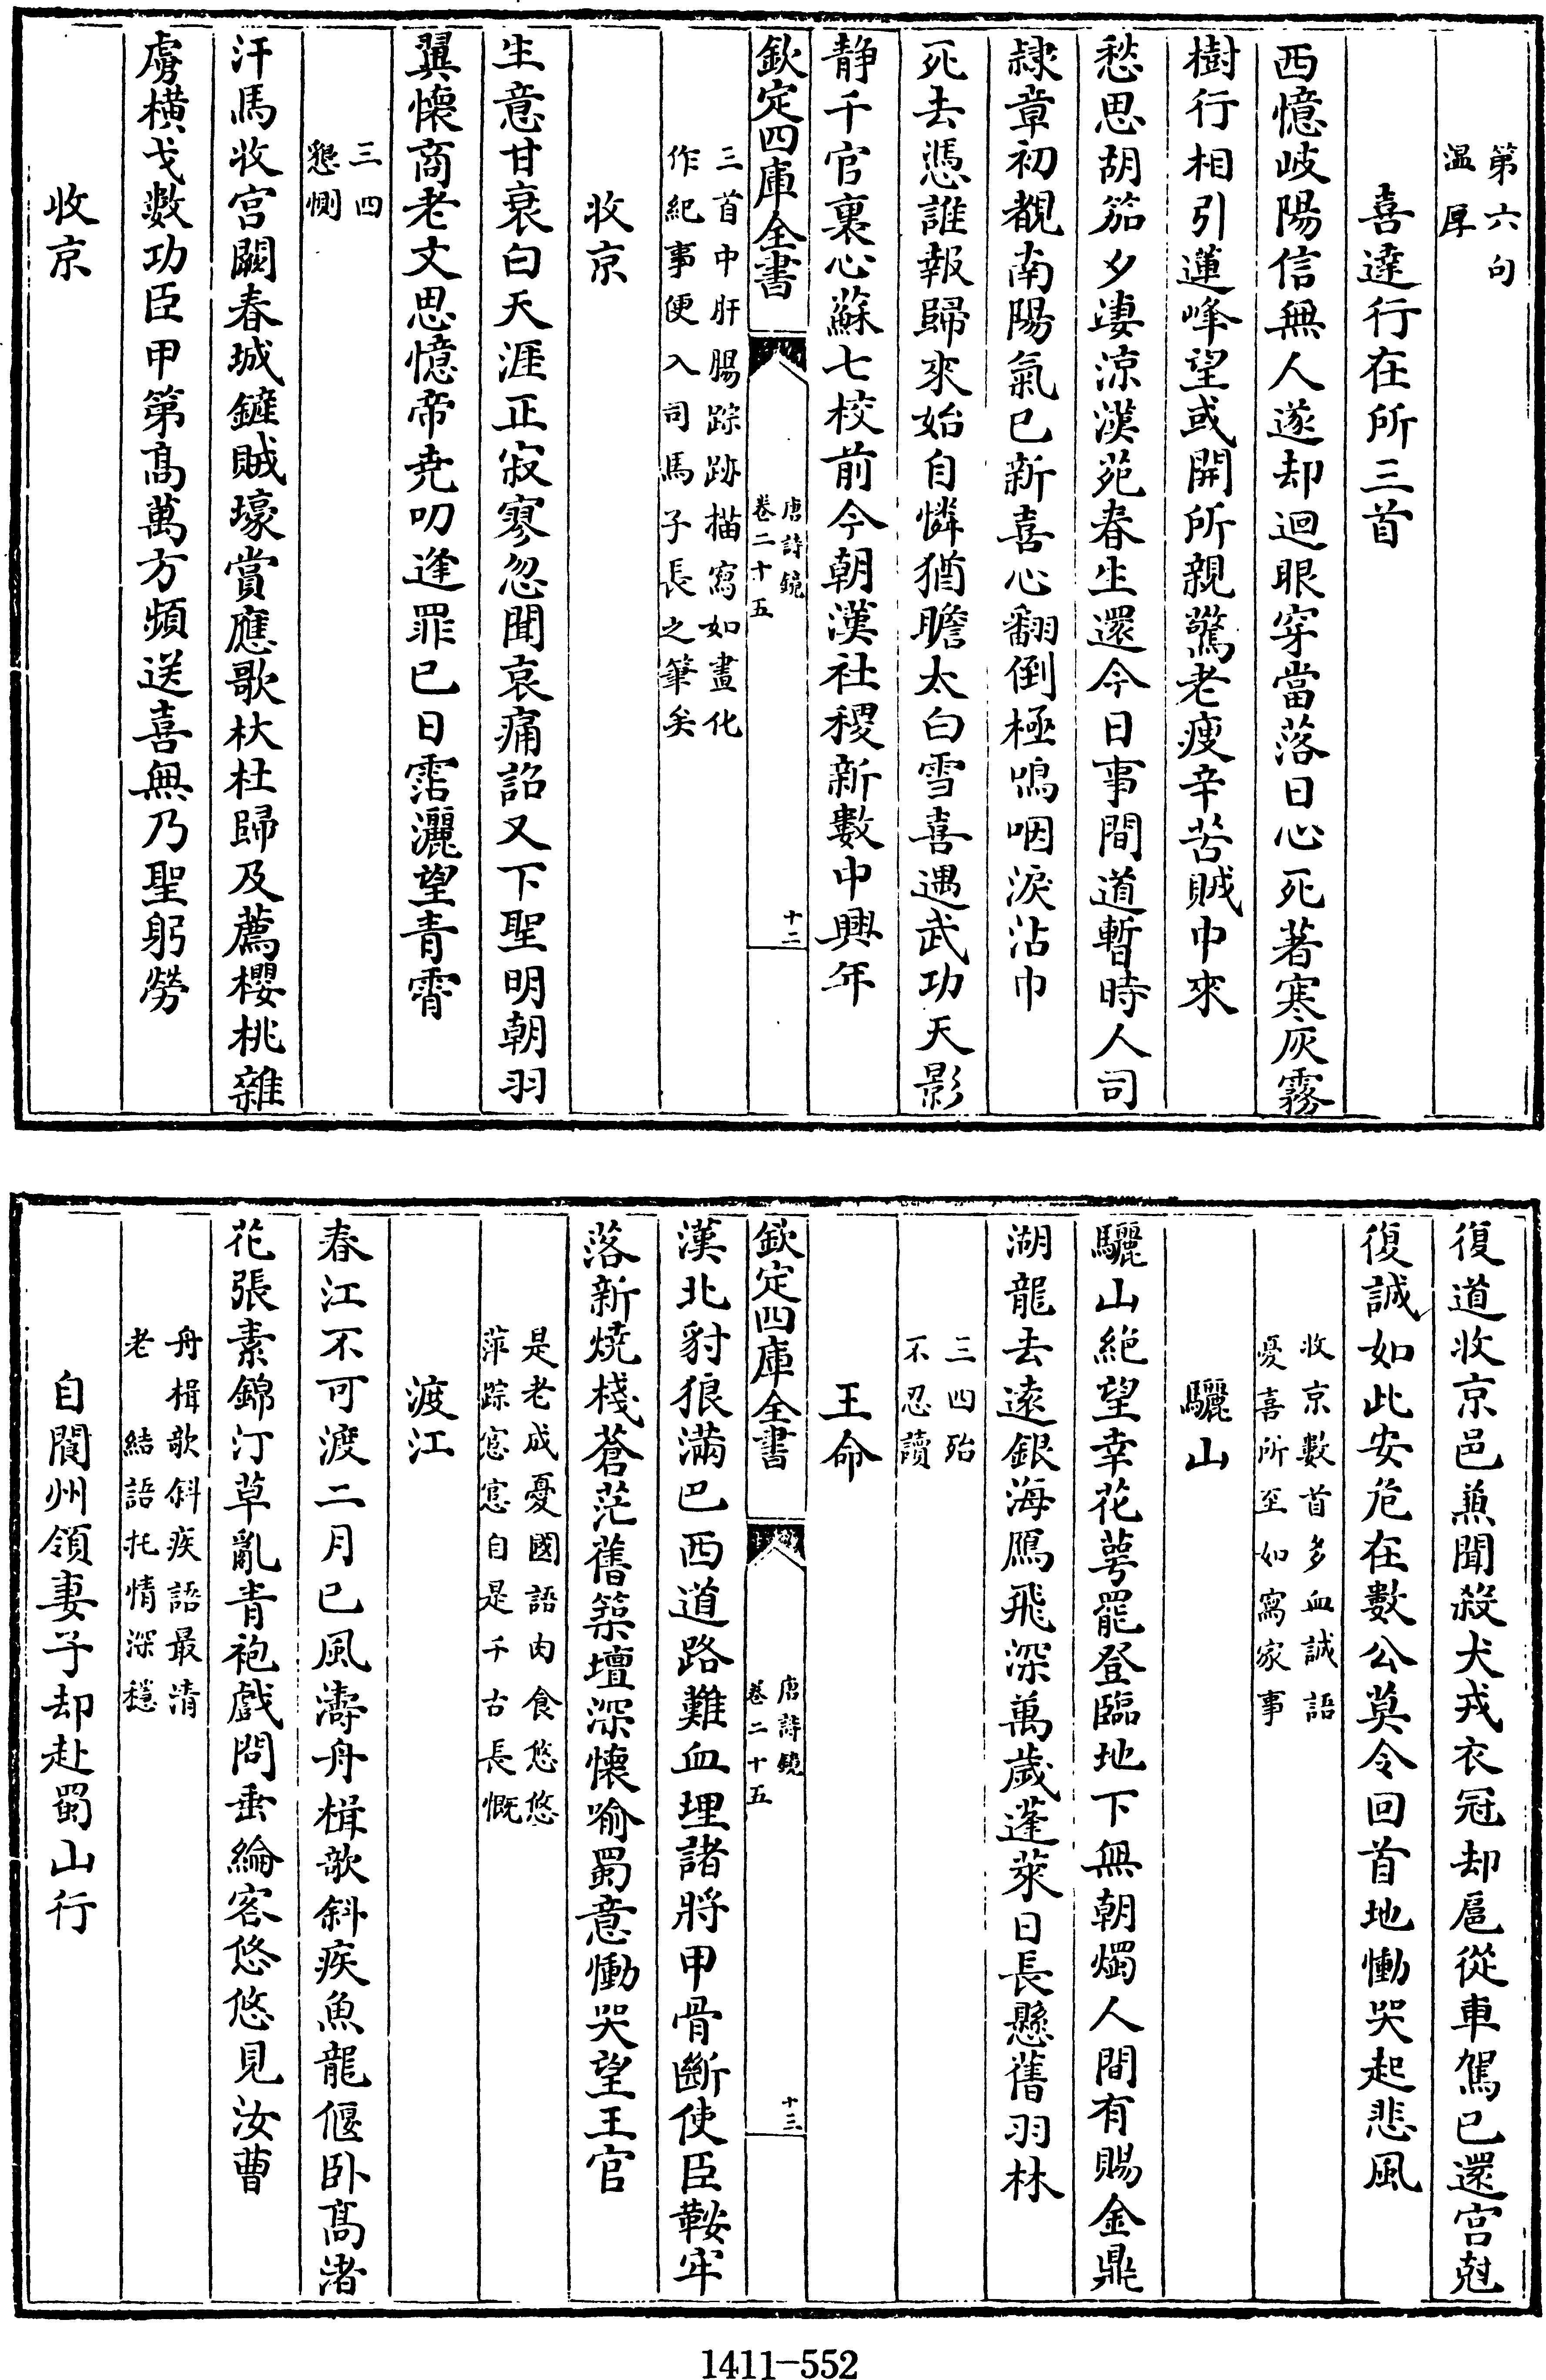 第六句
温厚
喜達行在所三首
西憶岐陽信無人遂却迴眼穿當落日心死著寒灰霧
樹行相引蓮峰望或開所親驚老瘦辛苦賊中來
愁思胡笳夕淒涼漢苑春生還今日事間道暫時人司
隷章初覩南陽氣已新喜心翻倒極嗚咽淚沾巾
死去憑誰報歸來始自憐猶瞻太白雪喜遇武功天影
静千官裏心蘇七校前今朝漢社稷新數中興年
欽定四庫全書
唐詩鏡
卷二十五
十二
三首中肝腸踪跡描寫如畫化
作紀事便入司馬子長之筆矣
收京
生意甘衰白天涯正寂寥忽聞哀痛詔又下聖明朝羽
翼懷商老文思憶帝堯叨逢罪已日霑灑望青霄
三四
懇惻
汗馬收宫闕春城鏟賊壕賞應歌杕杜歸及薦櫻桃雜
虜横戈數功臣甲第髙萬方頻送喜無乃聖躬勞
收京
復道收京邑兼聞殺犬戎衣冠却扈從車駕已還宫尅
復誠如此安危在數公莫令回首地慟哭起悲風
收京數首多血誠語
憂喜所至如寫家事
驪山
驪山絶望幸花萼罷登臨地下無朝燭人間有賜金鼎
湖龍去逺銀海鴈飛深萬歳蓬萊日長懸舊羽林
三四殆
不忍讀
王命
欽定四庫全書
唐詩鏡
卷二十五
十三
漢北豺狼滿巴西道路難血埋諸將甲骨斷使臣鞍牢
落新燒棧蒼茫舊築壇深懷喻蜀意慟哭望王官
是老成憂國語肉食悠悠
萍踪窓窓自是千古長慨
渡江
春江不可渡二月已風濤舟楫欹斜疾魚龍偃卧髙渚
花張素錦汀草亂青袍戲問垂綸客悠悠見汝曹
舟楫欹斜疾語最清
老 結語托情深穩
自閬州領妻子却赴蜀山行
1411-552